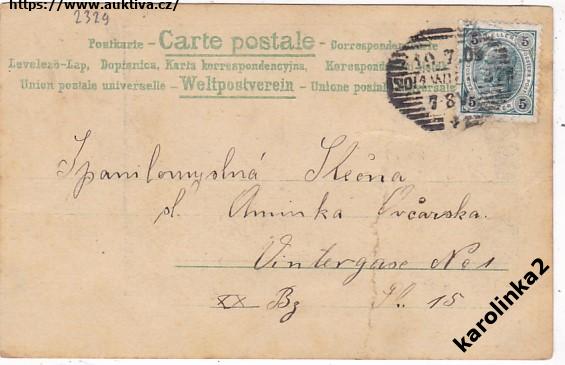 https://www.auktiva.cz/
2329
Postkarte – Carte postale – Correspondenzkarte
Levelező-Lap, Dopisnica, Karta korrespondencyjna,
Union postale universelle – Weltpostverein – Unione postale universale
5 5
5 5
Spanilomyslná Slečna
sl. Aminka Ovčarska.
Vintergase No 1
XX Bz 15
karolinka2